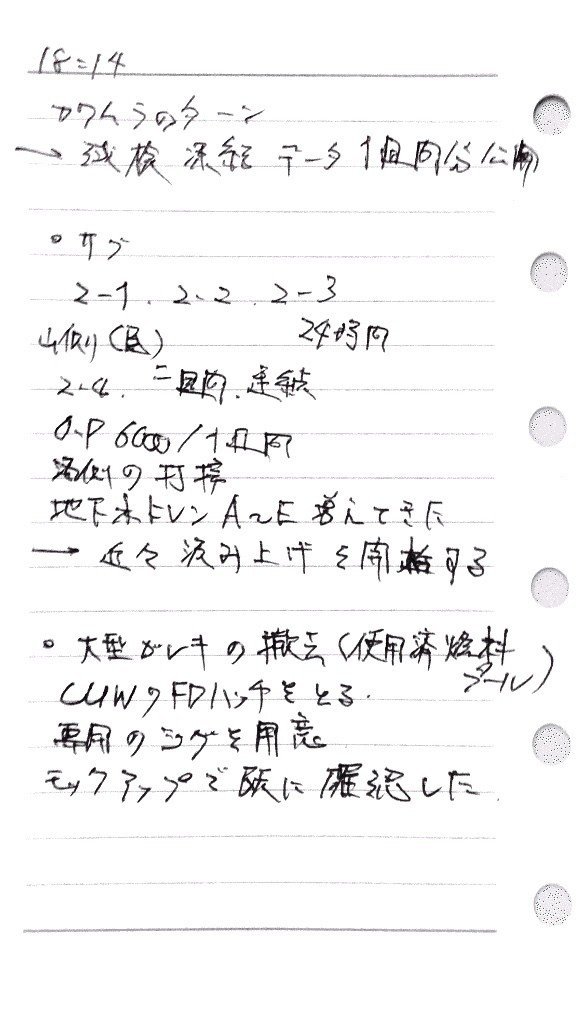 18:14
カワムラのターン
→ 凍結 データ 1週間分公開
○サブ
2-1. 2-2. 2-3
山側(図) 24時間
2-4. 二週間. 連続
O.P 6000/1週間
海側の打撃
地下水ドレン A~E 増えてきた
→ 近々 汲み上げを開始する
○ 大型ガレキの撤去(使用済燃料プール)
CUWのFDハッチをとる.
専用のジグを用意
モックアップで既に確認した.